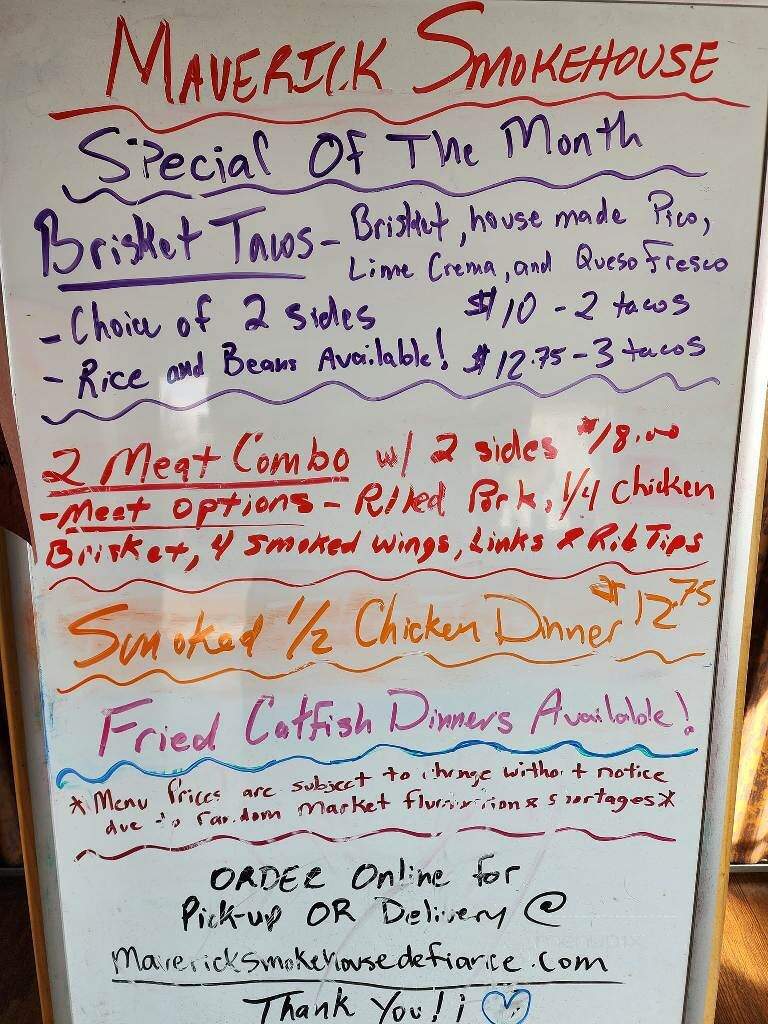 MAVERICK SMOKEHOUSE
Special Of The Month
Brisket Tacos - Brisket, house made Pico,
Lime Crema, and Queso Fresco
- Choice of 2 sides $10 - 2 tacos
- Rice and Beans Available! $12.75 - 3 tacos
2 Meat Combo w/ 2 sides $18.00
- Meat options - Pulled Pork, 1/4 Chicken
Brisket, 4 smoked wings, Links & Rib Tips
Smoked 1/2 Chicken Dinner $12.75
Fried Catfish Dinners Available!
*Menu Prices are subject to change without notice
due to random market & shortages*
ORDER Online for
Pick-up OR Delivery @
Mavericksmokehousedefiance.com
Thank You!!